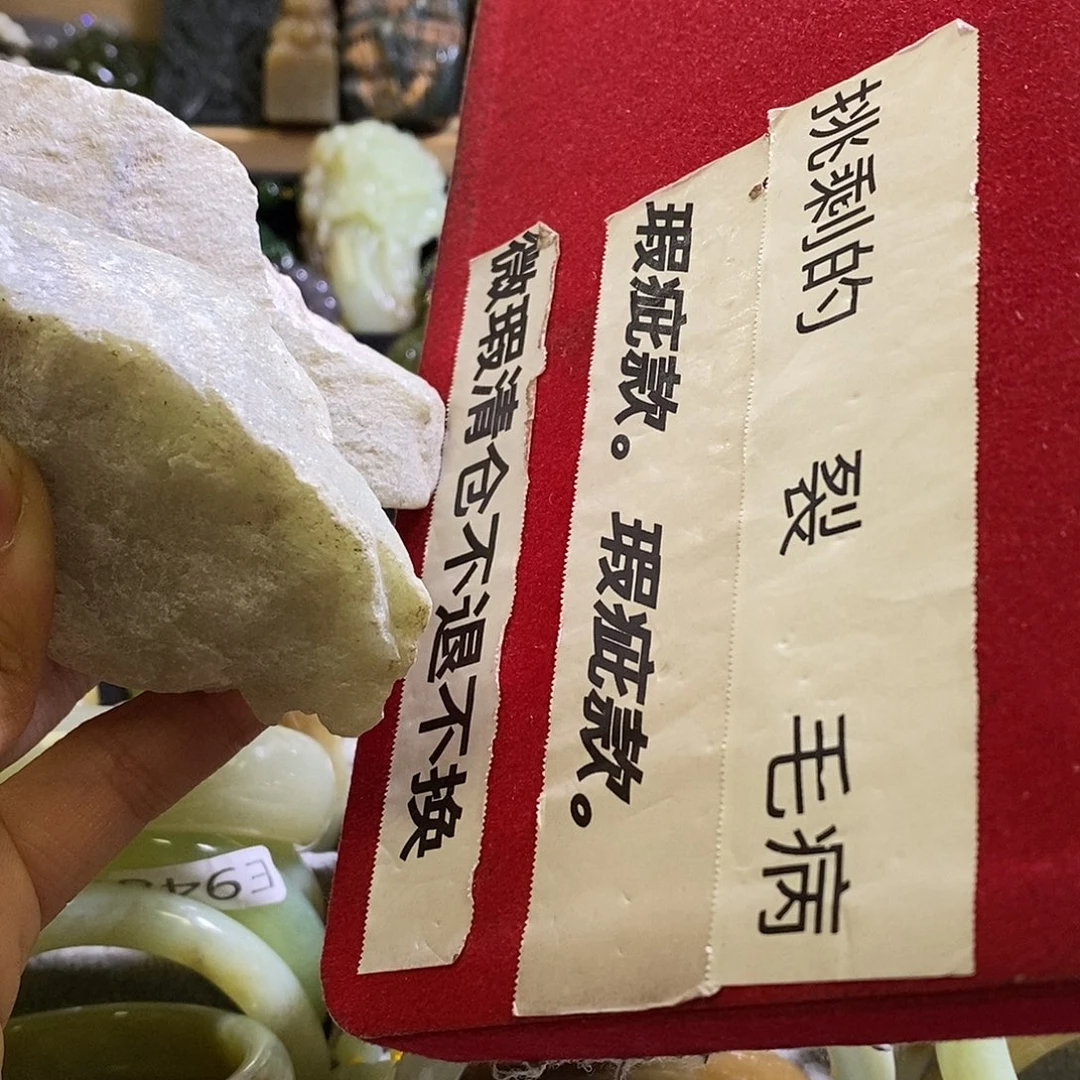 挑剩的 裂 毛病
瑕疵款。瑕疵款。
微瑕清仓不退不换
E94